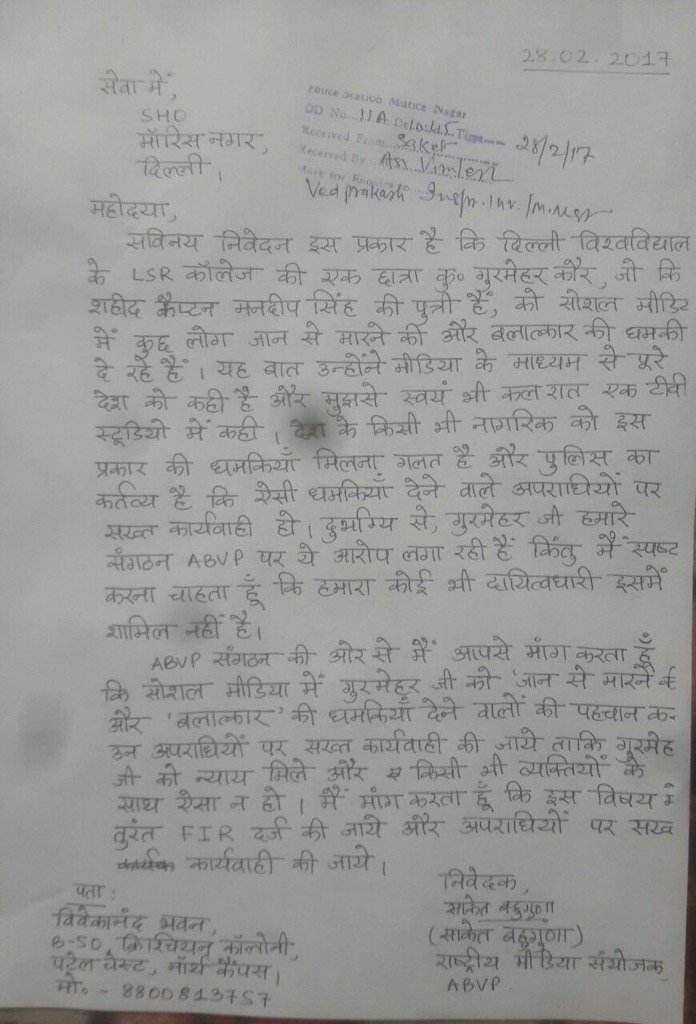 28.02.2017
सेवा में,
SHO
मॉरिस नगर,
दिल्ली।
Police Station Maurice Nagar
DD No. 11A Dt. Time
Received From Saket 28/2/17
Received By ASI
Ved prakash
महोदया,
सविनय निवेदन इस प्रकार है कि दिल्ली विश्वविद्याल
के LSR कॉलेज की एक छात्रा कु० गुरमेहर कौर, जो कि
शहीद कैप्टन मनदीप सिंह की पुत्री हैं, को सोशल मीडिय
में कुछ लोग जान से मारने की और बलात्कार की धमकी
दे रहे हैं। यह बात उन्होंने मीडिया के माध्यम से पूरे
देश को कही है और मुझसे स्वयं भी कल रात एक टीवी
स्टूडियो में कही। देश के किसी भी नागरिक को इस
प्रकार की धमकियाँ मिलना गलत है और पुलिस का
कर्तव्य है कि ऐसी धमकियाँ देने वाले अपराधियों पर
सख्त कार्यवाही हो। दुर्भाग्य से, गुरमेहर जी हमारे
संगठन ABVP पर ये आरोप लगा रही हैं किंतु मैं स्पष्ट
करना चाहता हूँ कि हमारा कोई भी दायित्वधारी इसमें
शामिल नहीं है।
ABVP संगठन की ओर से मैं आपसे मांग करता हूँ
कि सोशल मीडिया में गुरमेहर जी को 'जान से मारने की
और 'बलात्कार' की धमकियाँ देने वालों की पहचान कर
उन अपराधियों पर सख्त कार्यवाही की जाये ताकि गुरमेह
जी को न्याय मिले और किसी भी व्यक्तियों के
साथ ऐसा न हो। मैं मांग करता हूँ कि इस विषय में
तुरंत FIR दर्ज की जाये और अपराधियों पर सख्
कार्यवाही की जाये।
निवेदक,
साकेत बहुगुणा
(साकेत बहुगुणा)
राष्ट्रीय मीडिया संयोजक
ABVP.
पता:
विवेकानंद भवन,
B-50, क्रिश्चियन कॉलोनी,
पटेल चेस्ट, नॉर्थ कैंपस।
मो० - 8800813757